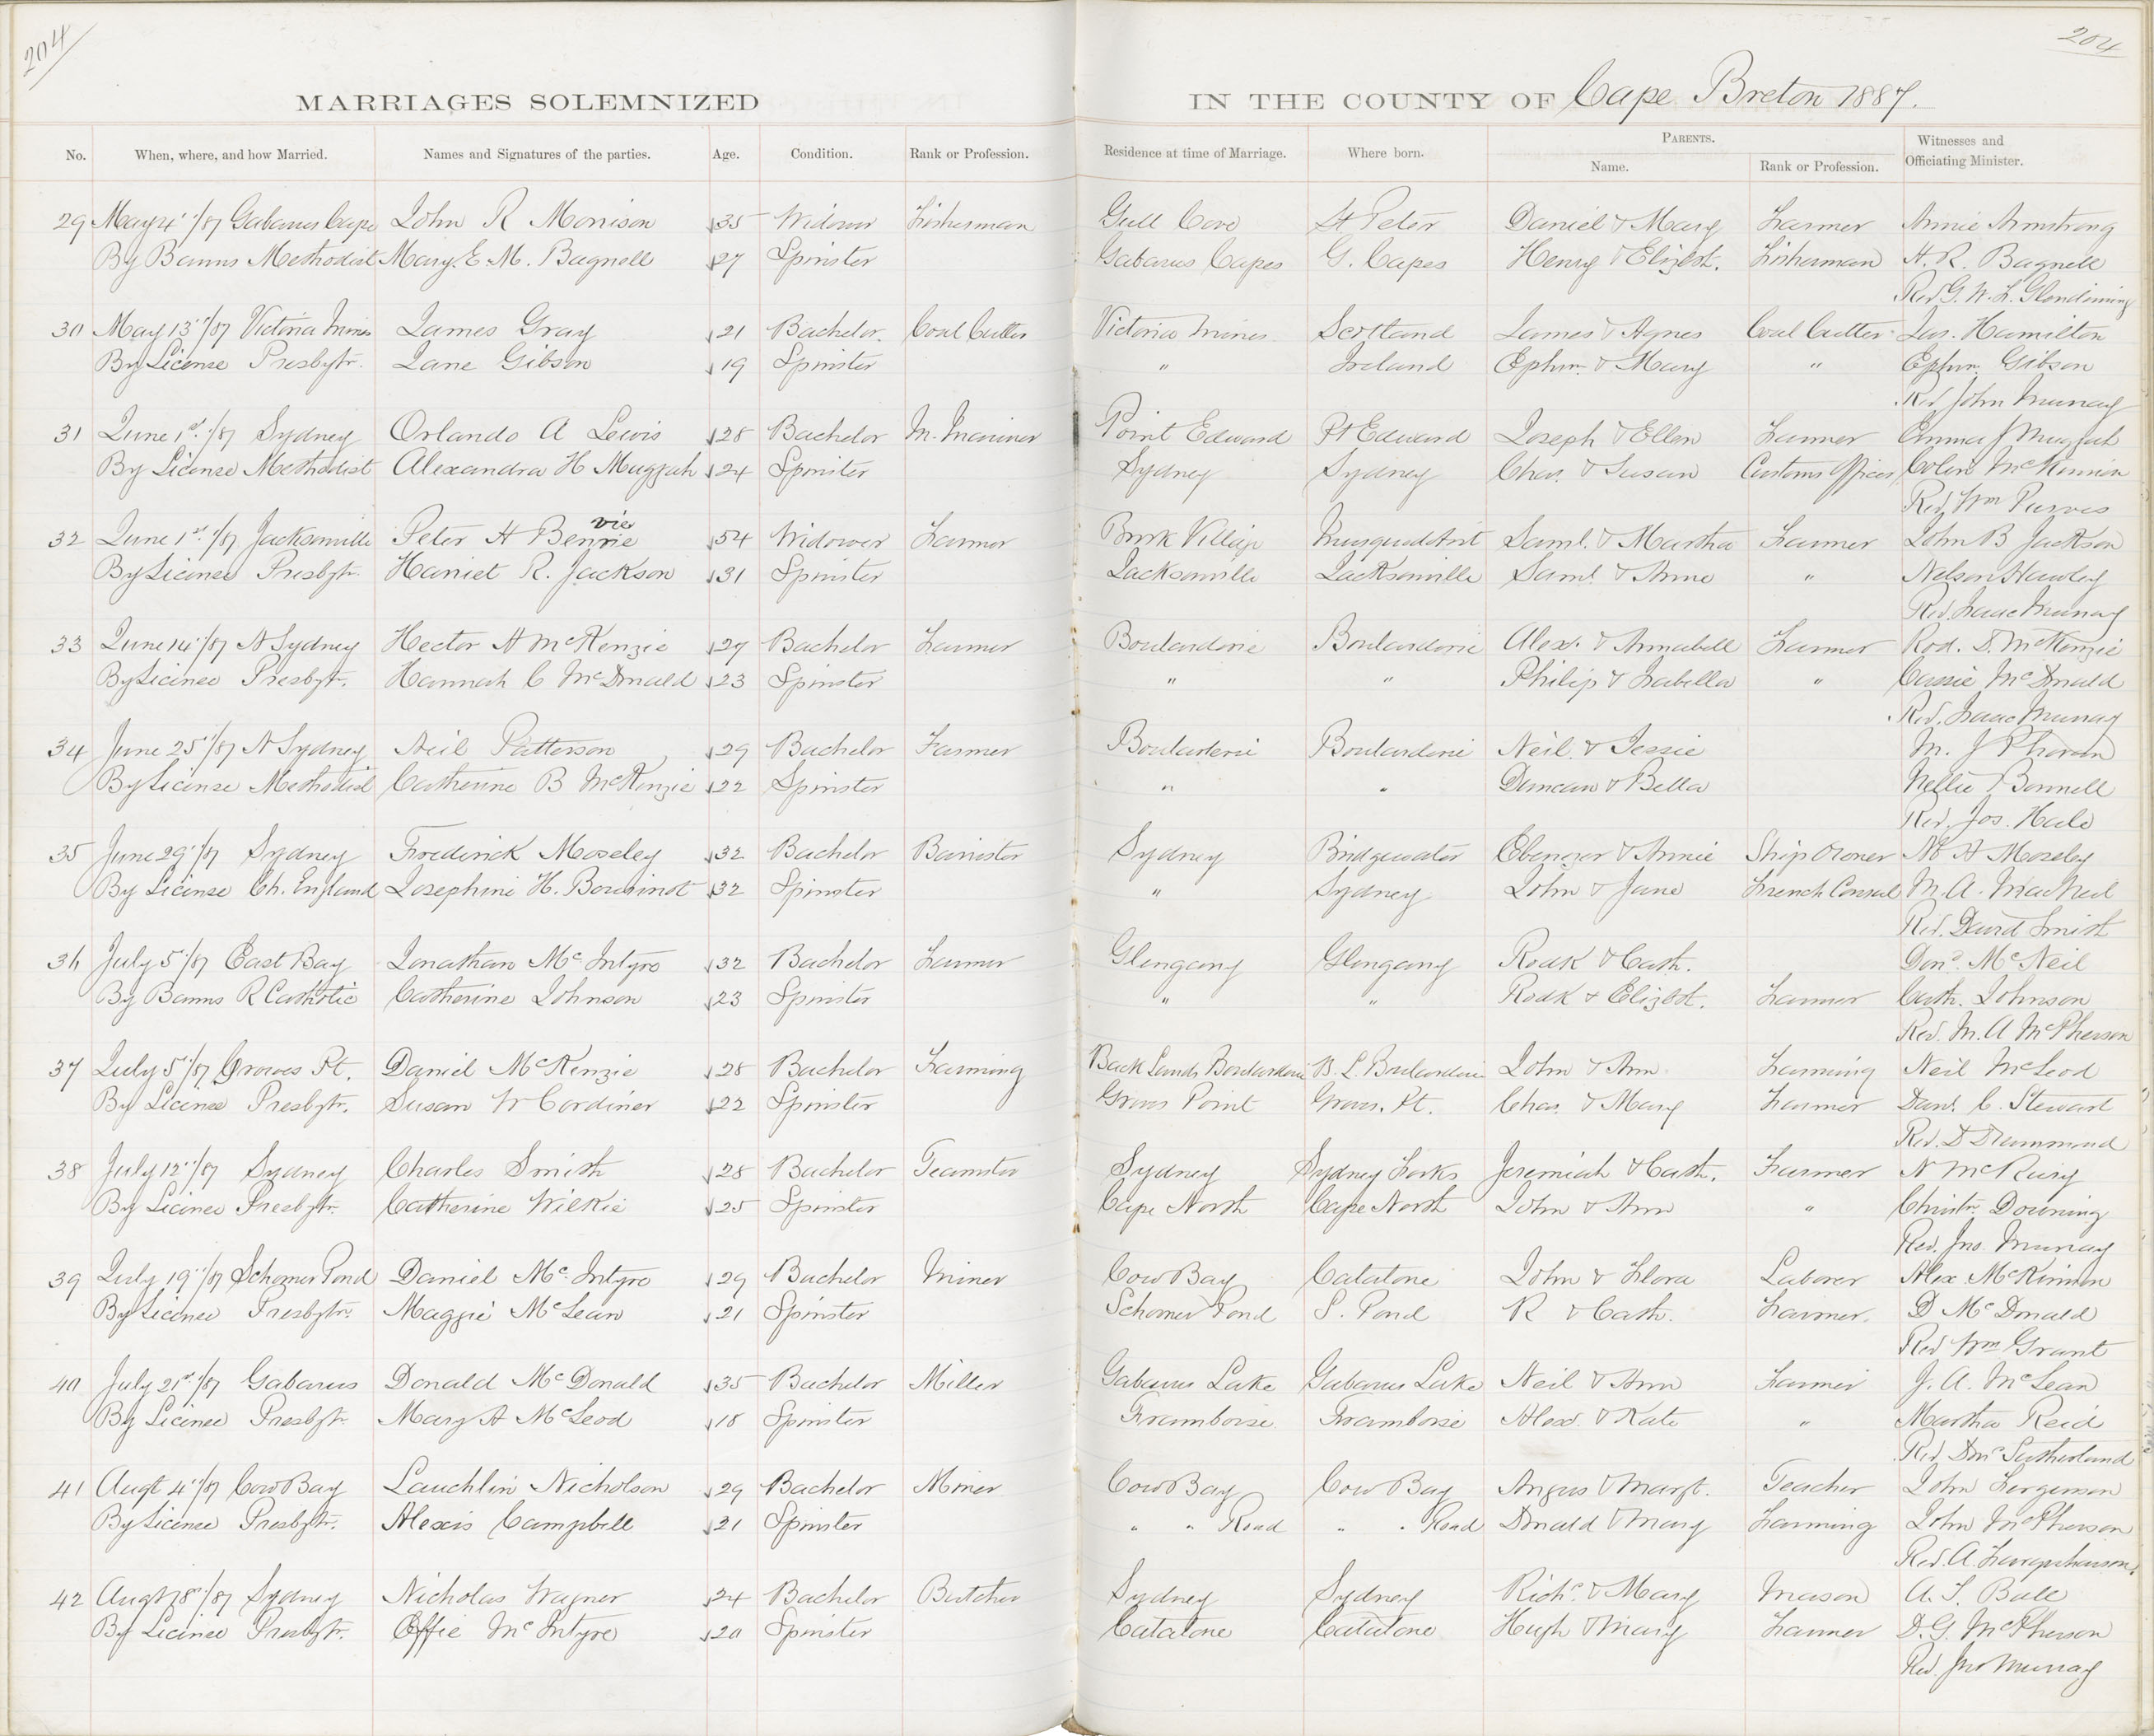 204
204
MARRIAGES SOLEMNIZED IN THE COUNTY OF Cape Breton 1887.
No. When, where, and how Married. Names and Signatures of the parties. Age. Condition. Rank or Profession. Residence at time of Marriage. Where born. PARENTS. Name. Rank or Profession. Witnesses and Officiating Minister.
29 May 4"/87 Gabarus Cape John R Morrison 35 Widower Fisherman Gull Cove St Peter Daniel & Mary Farmer Annie Armstrong
By Banns Methodist Mary E. M. Bagnell 27 Spinster Gabarus Capes G. Capes Henry & Elizbt. Fisherman H. R. Bagnell
Rev G. W. F. Glendinning
30 May 13"/87 Victoria Mines James Gray 21 Bachelor. Coal Cutter Victoria Mines Scotland James & Agnes Coal Cutter Jas. Hamilton
By License Presbytr. Jane Gibson 19 Spinster " Ireland Ephm. & Mary " Ephm. Gibson
Rev John Murray
31 June 1st/87 Sydney Orlando A Lewis 28 Bachelor M. Mariner Point Edward Pt Edward Joseph & Ellen Farmer Emma J Muggah
By License Methodist Alexandra H Muggah 24 Spinster Sydney Sydney Chas. & Susan Customs Officer Colin McKinnon
Rev. Wm Purves
32 June 1st/87 Jacksonville Peter H Benvie 54 Widower Farmer Brook Village Musquodobit Saml. & Martha Farmer John B Jackson
By License Presbytr. Harriet R. Jackson 31 Spinster Jacksonville Jacksonville Saml. & Anne " Nelson Hawley
Rev. Isaac Murray
33 June 14"/87 N Sydney Hector A McKenzie 27 Bachelor Farmer Boularderie Boularderie Alex. & Annabell Farmer Rod. D. McKenzie
By License Presbyt. Hannah C McDonald 23 Spinster " " Philip & Isabella " Cassie McDonald
Rev. Isaac Murray
34 June 25"/87 N Sydney Neil Patterson 29 Bachelor Farmer Boularderie Boularderie Neil & Jessie M. J Phoran
By License Methodist Catherine B McKenzie 22 Spinster " " Duncan & Bella Nellie Bonnell
Rev. Jos. Hale
35 June 29"/87 Sydney Frederick Moseley 32 Bachelor Barrister Sydney Bridgewater Ebenezer & Annie Ship Owner N A Moseley
By License Ch. England Josephine H. Bourinot 32 Spinster " Sydney John & Jane French Consul M. A. MacNeil
Rev. David Smith
36 July 5"/87 East Bay Jonathan McIntyre 32 Bachelor Farmer Glengarry Glengarry Rodk & Cath. Dond. McNeil
By Banns R Catholic Catherine Johnson 23 Spinster " " Rodk & Elizbt. Farmer Cath. Johnson
Rev. M. A McPherson
37 July 5"/87 Groves Pt. Daniel McKenzie 28 Bachelor Farming Back Lands Boularderie B. L. Boularderie John & Ann Farming Neil McLeod
By License Presbytr. Susan W Cordiner 22 Spinster Groves Point Groves. Pt. Chas. & Mary Farmer Danl. C. Stewart
Rev. D Drummond
38 July 12"/87 Sydney Charles Smith 28 Bachelor Teamster Sydney Sydney Forks Jeremiah & Cath. Farmer N McRury
By License Presbytr. Catherine Wilkie 25 Spinster Cape North Cape North John & Ann " Christn. Downing
Rev. Jno. Murray
39 July 19"/87 Schooner Pond Daniel McIntyre 29 Bachelor Miner Cow Bay Catalone John & Flora Laborer Alex McKinnon
By License Presbytr. Maggie McLean 21 Spinster Schooner Pond S. Pond R & Cath. Farmer. D McDonald
Rev Wm Grant
40 July 21st/87 Gabarus Donald McDonald 35 Bachelor Miller Gabarus Lake Gabarus Lake Neil & Ann Farmer J. A. McLean
By License Presbytr. Mary A McLeod 18 Spinster Framboise Framboise Alex. & Kate " Martha Reid
Rev. Dond Sutherland
41 Augt 4"/87 Cow Bay Lauchlin Nicholson 29 Bachelor Miner Cow Bay Cow Bay Angus & Margt. Teacher John Fergerson
By License Presbytr. Alexis Campbell 21 Spinster " " Road " " Road Donald & Mary Farming John McPherson
Rev. A. Farquharson
42 Augt 8"/87 Sydney Nicholas Wagner 24 Bachelor Butcher Sydney Sydney Richd. & Mary Mason A. S. Ball
By License Presbytr. Effie McIntyre 20 Spinster Catalone Catalone Hugh & Mary Farmer D. G. McPherson
Rev. Jno Murray